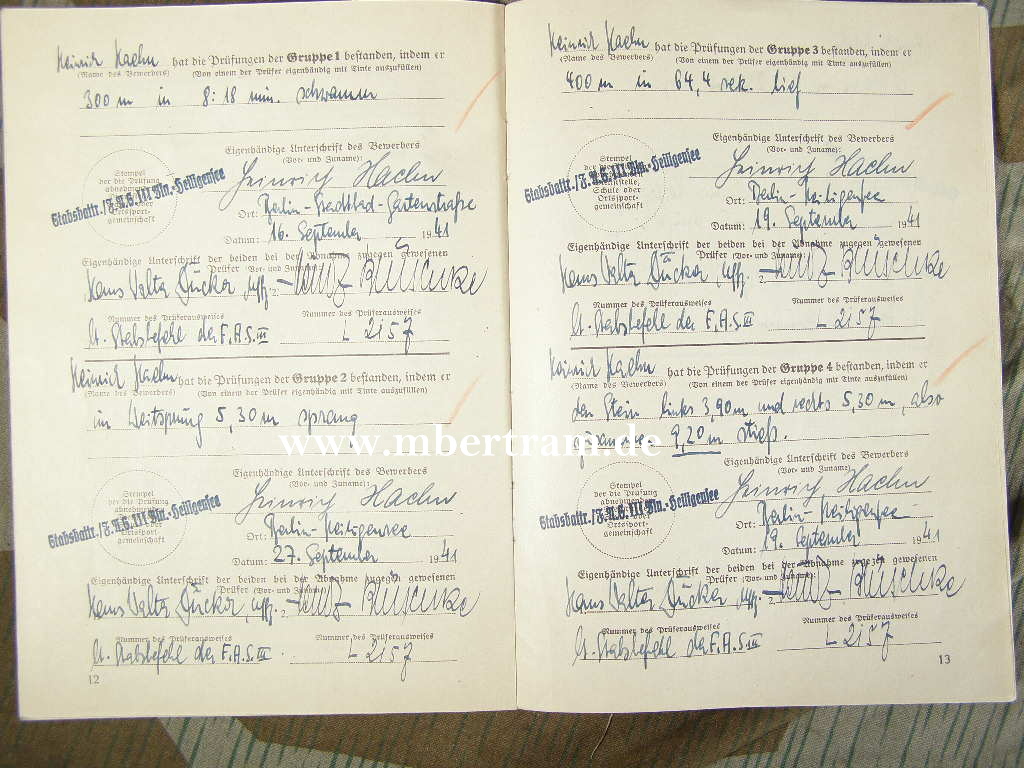 Heinrich Haehn hat die Prüfungen der Gruppe 1 bestanden, indem er
(Name des Bewerbers) (Von einem der Prüfer eigenhändig mit Tinte auszufüllen)
300 m in 8:18 min. schwamm
Eigenhändige Unterschrift des Bewerbers
(Vor- und Zuname):
Stempel
der die Prüfung
abnehmenden
Ortssport-
gemeinschaft
Stabsbattr./F.A.S. III Bln.-Heiligensee
Heinrich Haehn
Ort: Berlin-Stadtbad-Gartenstraße
Datum: 16. September 1941
Eigenhändige Unterschrift der beiden bei der Abnahme zugegen gewesenen
Prüfer (Vor- und Zuname):
1. Hans Walter Dücker, Uffz. 2.
Nummern des Prüferausweises Nummer des Prüferausweises
lt. Stabsbefehl der F.A.S. III L 2157
Heinrich Haehn hat die Prüfungen der Gruppe 2 bestanden, indem er
(Name des Bewerbers) (Von einem der Prüfer eigenhändig mit Tinte auszufüllen)
im Weitsprung 5,30 m sprang
Eigenhändige Unterschrift des Bewerbers
(Vor- und Zuname):
Stempel
der die Prüfung
abnehmenden
Ortssport-
gemeinschaft
Stabsbattr./F.A.S. III Bln.-Heiligensee
Heinrich Haehn
Ort: Berlin-Heiligensee
Datum: 27. September 1941
Eigenhändige Unterschrift der beiden bei der Abnahme zugegen gewesenen
Prüfer (Vor- und Zuname):
Hans Walter Dücker, Uffz. 2.
Nummern des Prüferausweises Nummer des Prüferausweises
lt. Stabsbefehl der F.A.S. III. L 2157
12
Heinrich Haehn hat die Prüfungen der Gruppe 3 bestanden, indem er
(Name des Bewerbers) (Von einem der Prüfer eigenhändig mit Tinte auszufüllen)
400 m in 64,4 sek. lief
Eigenhändige Unterschrift des Bewerbers
(Vor- und Zuname):
Stempel
Schule oder
Ortssport-
gemeinschaft
Stabsbattr./F.A.S. III Bln.-Heiligensee
Heinrich Haehn
Ort: Berlin-Heiligensee
Datum: 19. September 1941
Eigenhändige Unterschrift der beiden bei der Abnahme zugegen gewesenen
Prüfer (Vor- und Zuname):
Hans Walter Dücker, Uffz. 2.
Nummern des Prüferausweises Nummer des Prüferausweises
lt. Stabsbefehl der F.A.S. III L 2157
Heinrich Haehn hat die Prüfungen der Gruppe 4 bestanden, indem er
(Name des Bewerbers) (Von einem der Prüfer eigenhändig mit Tinte auszufüllen)
den Stein links 3,90 m und rechts 5,30 m, also
zusammen 9,20 m stieß.
Eigenhändige Unterschrift des Bewerbers
(Vor- und Zuname):
Stempel
der die Prüfung
abnehmenden
Ortssport-
gemeinschaft
Stabsbattr./F.A.S. III Bln.-Heiligensee
Heinrich Haehn
Ort: Berlin-Heiligensee
Datum: 19. September 1941
Eigenhändige Unterschrift der beiden bei der Abnahme zugegen gewesenen
Prüfer (Vor- und Zuname):
Hans Walter Dücker, Uffz. 2.
Nummern des Prüferausweises Nummer des Prüferausweises
lt. Stabsbefehl der F.A.S. III L 2157
13
www.mbertram.de